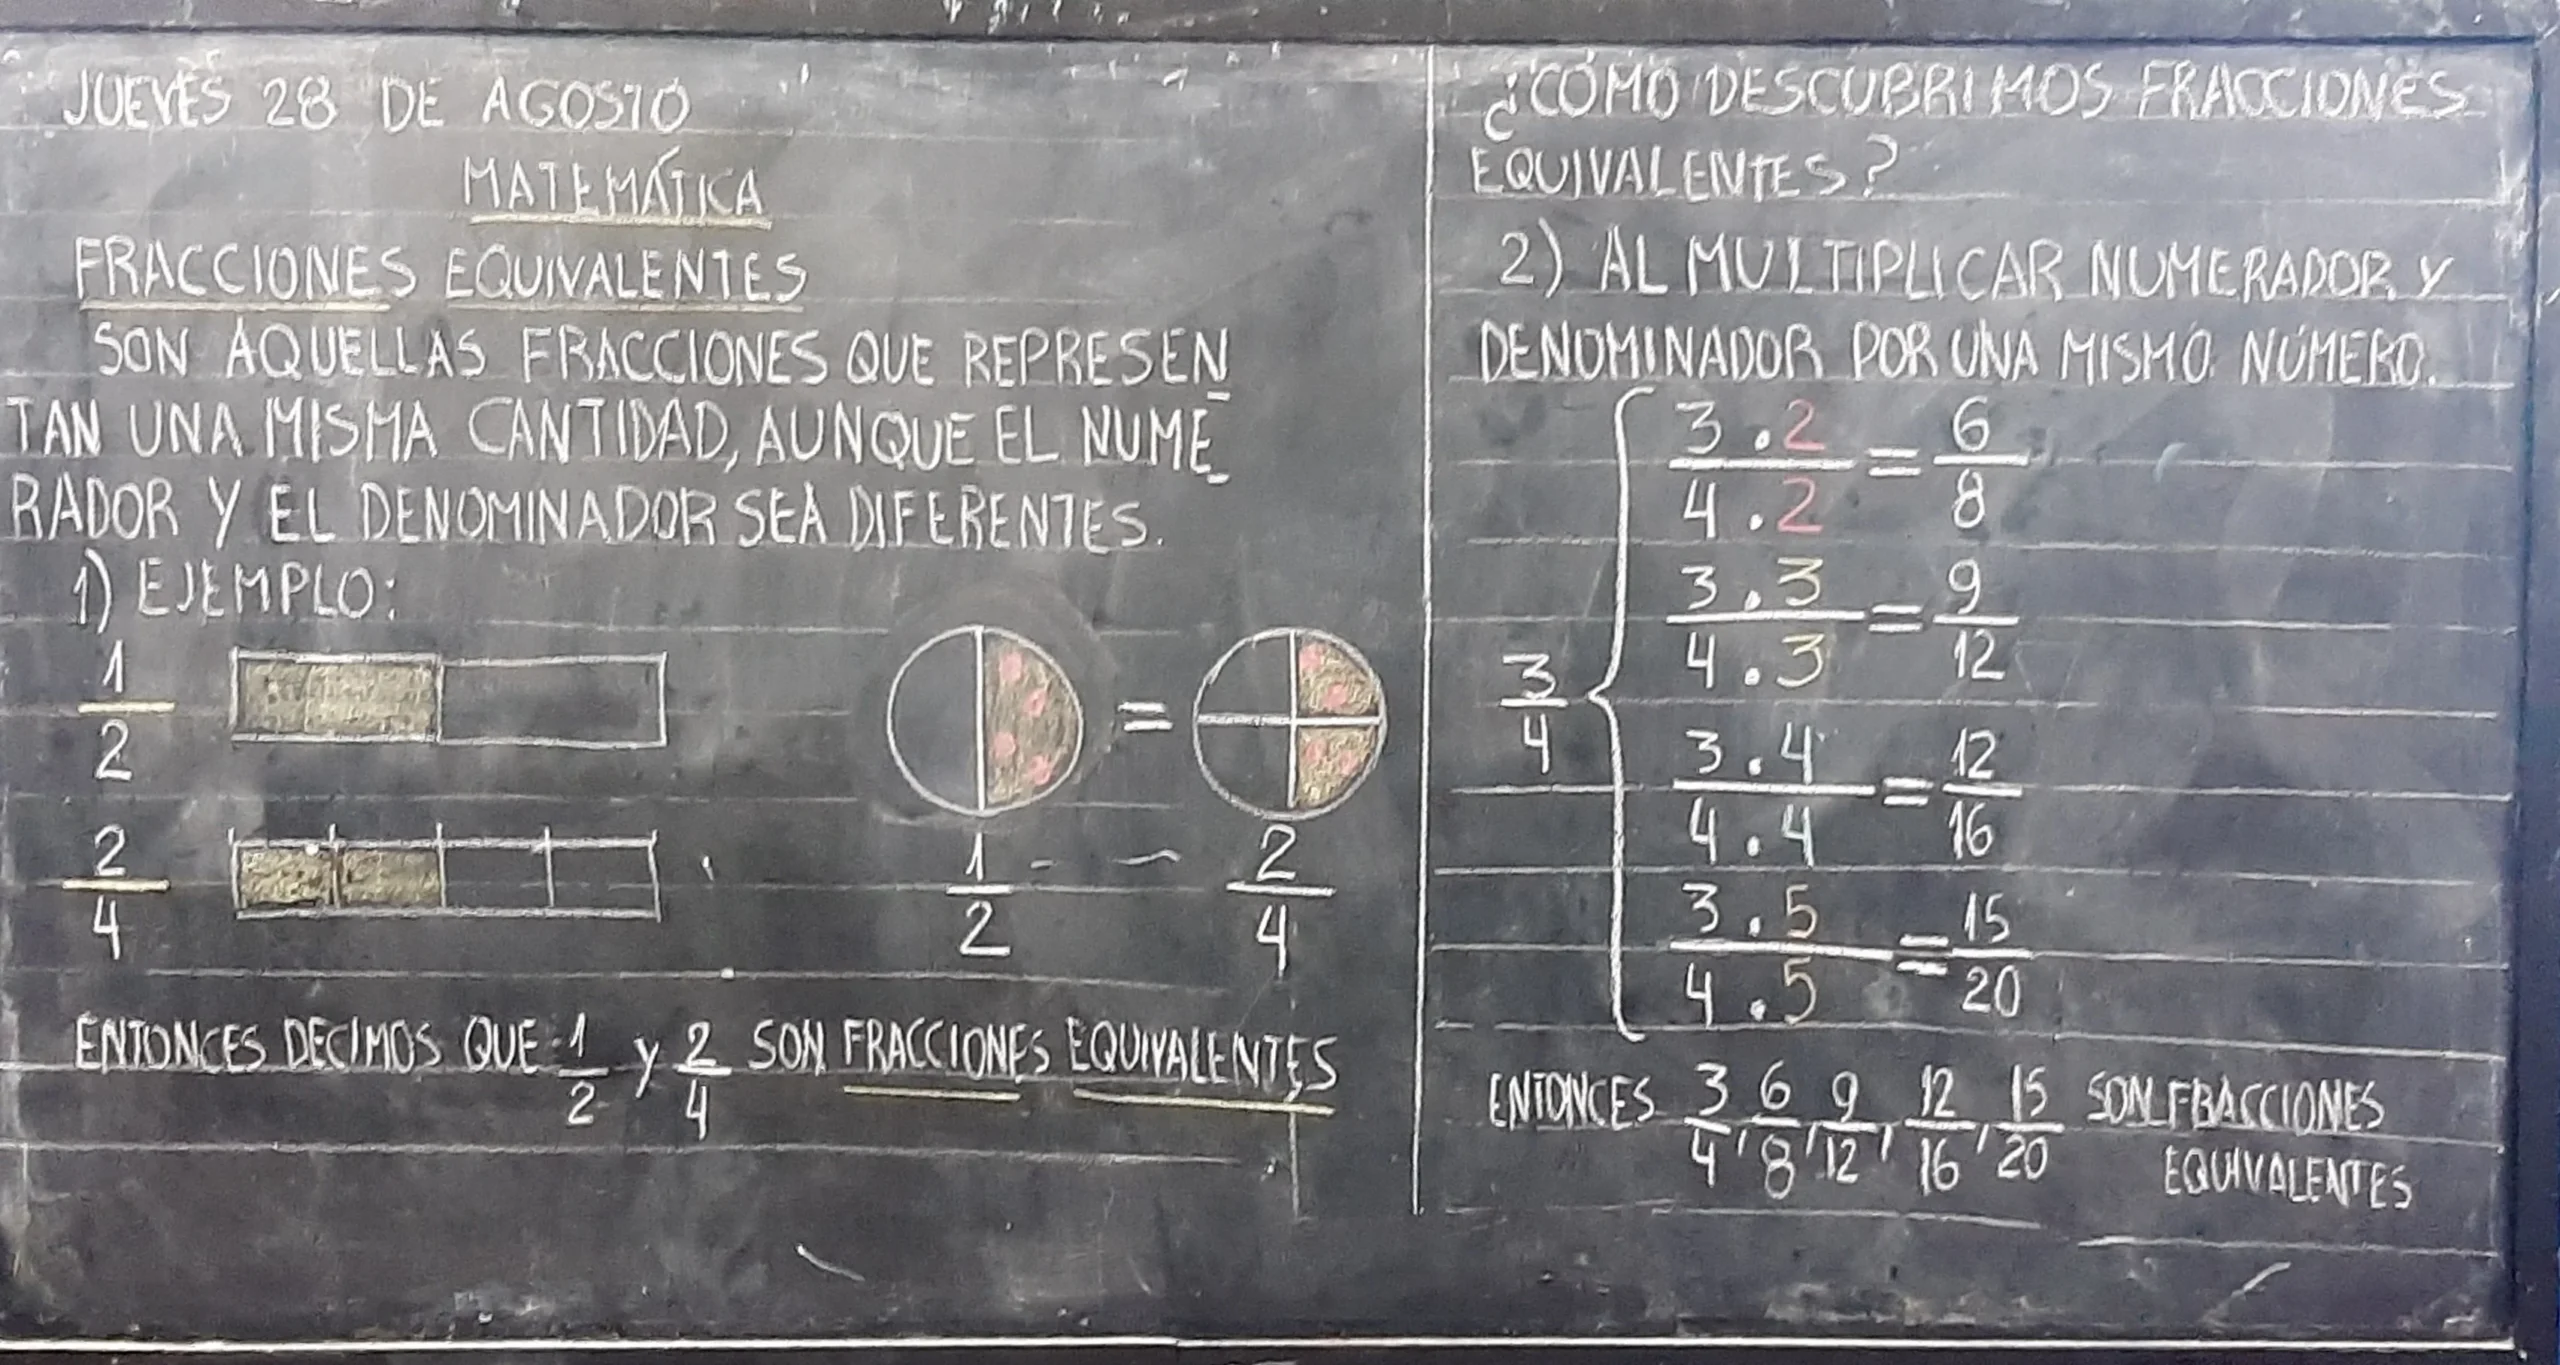 JUEVES 28 DE AGOSTO
MATEMÁTICA
FRACCIONES EQUIVALENTES
SON AQUELLAS FRACCIONES QUE REPRESEN
TAN UNA MISMA CANTIDAD, AUNQUE EL NUME
RADOR Y EL DENOMINADOR SEA DIFERENTES.
1) EJEMPLO:
1/2
=
2/4
1/2 2/4
ENTONCES DECIMOS QUE 1/2 Y 2/4 SON FRACCIONES EQUIVALENTES
¿CÓMO DESCUBRIMOS FRACCIONES
EQUIVALENTES?
2) AL MULTIPLICAR NUMERADOR Y
DENOMINADOR POR UNA MISMO NÚMERO.
3/4
3.2/4.2 = 6/8
3.3/4.3 = 9/12
3.4/4.4 = 12/16
3.5/4.5 = 15/20
ENTONCES 3/4, 6/8, 9/12, 12/16, 15/20 SON FRACCIONES
EQUIVALENTES